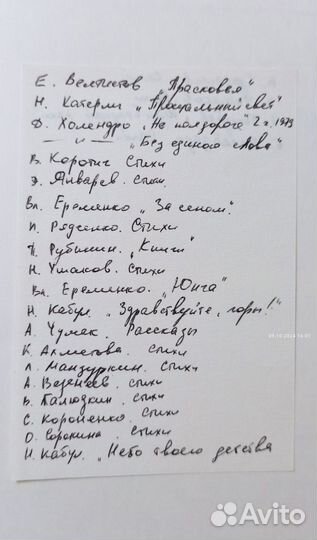 Е. Велтистов „Прасковья"
Н. Катерли „Прощальный свет"
Д. Холендро „Не полдороге" 2 ч, 1979
—"— „Без единого слова"
В. Коротич Стихи
Э. Январев. Стихи.
Вл. Еременко „За сеном".
И. Рядченко. Стихи
Рубинин. „Книги"
Н. Ушаков. Стихи
Вл. Еременко. „Юнга"
Н. Кабул. „Здравствуйте, горы!"
А. Чумак. Рассказы
К. Ахметова. Стихи
Л. Манзуркин. Стихи
А. Стихи
В. Палюзкин. Стихи
С. Короненко. Стихи
О. Сорокина. Стихи
Н. Кабул. „Небо твоего детства
09.10.2024 14:01
Avito